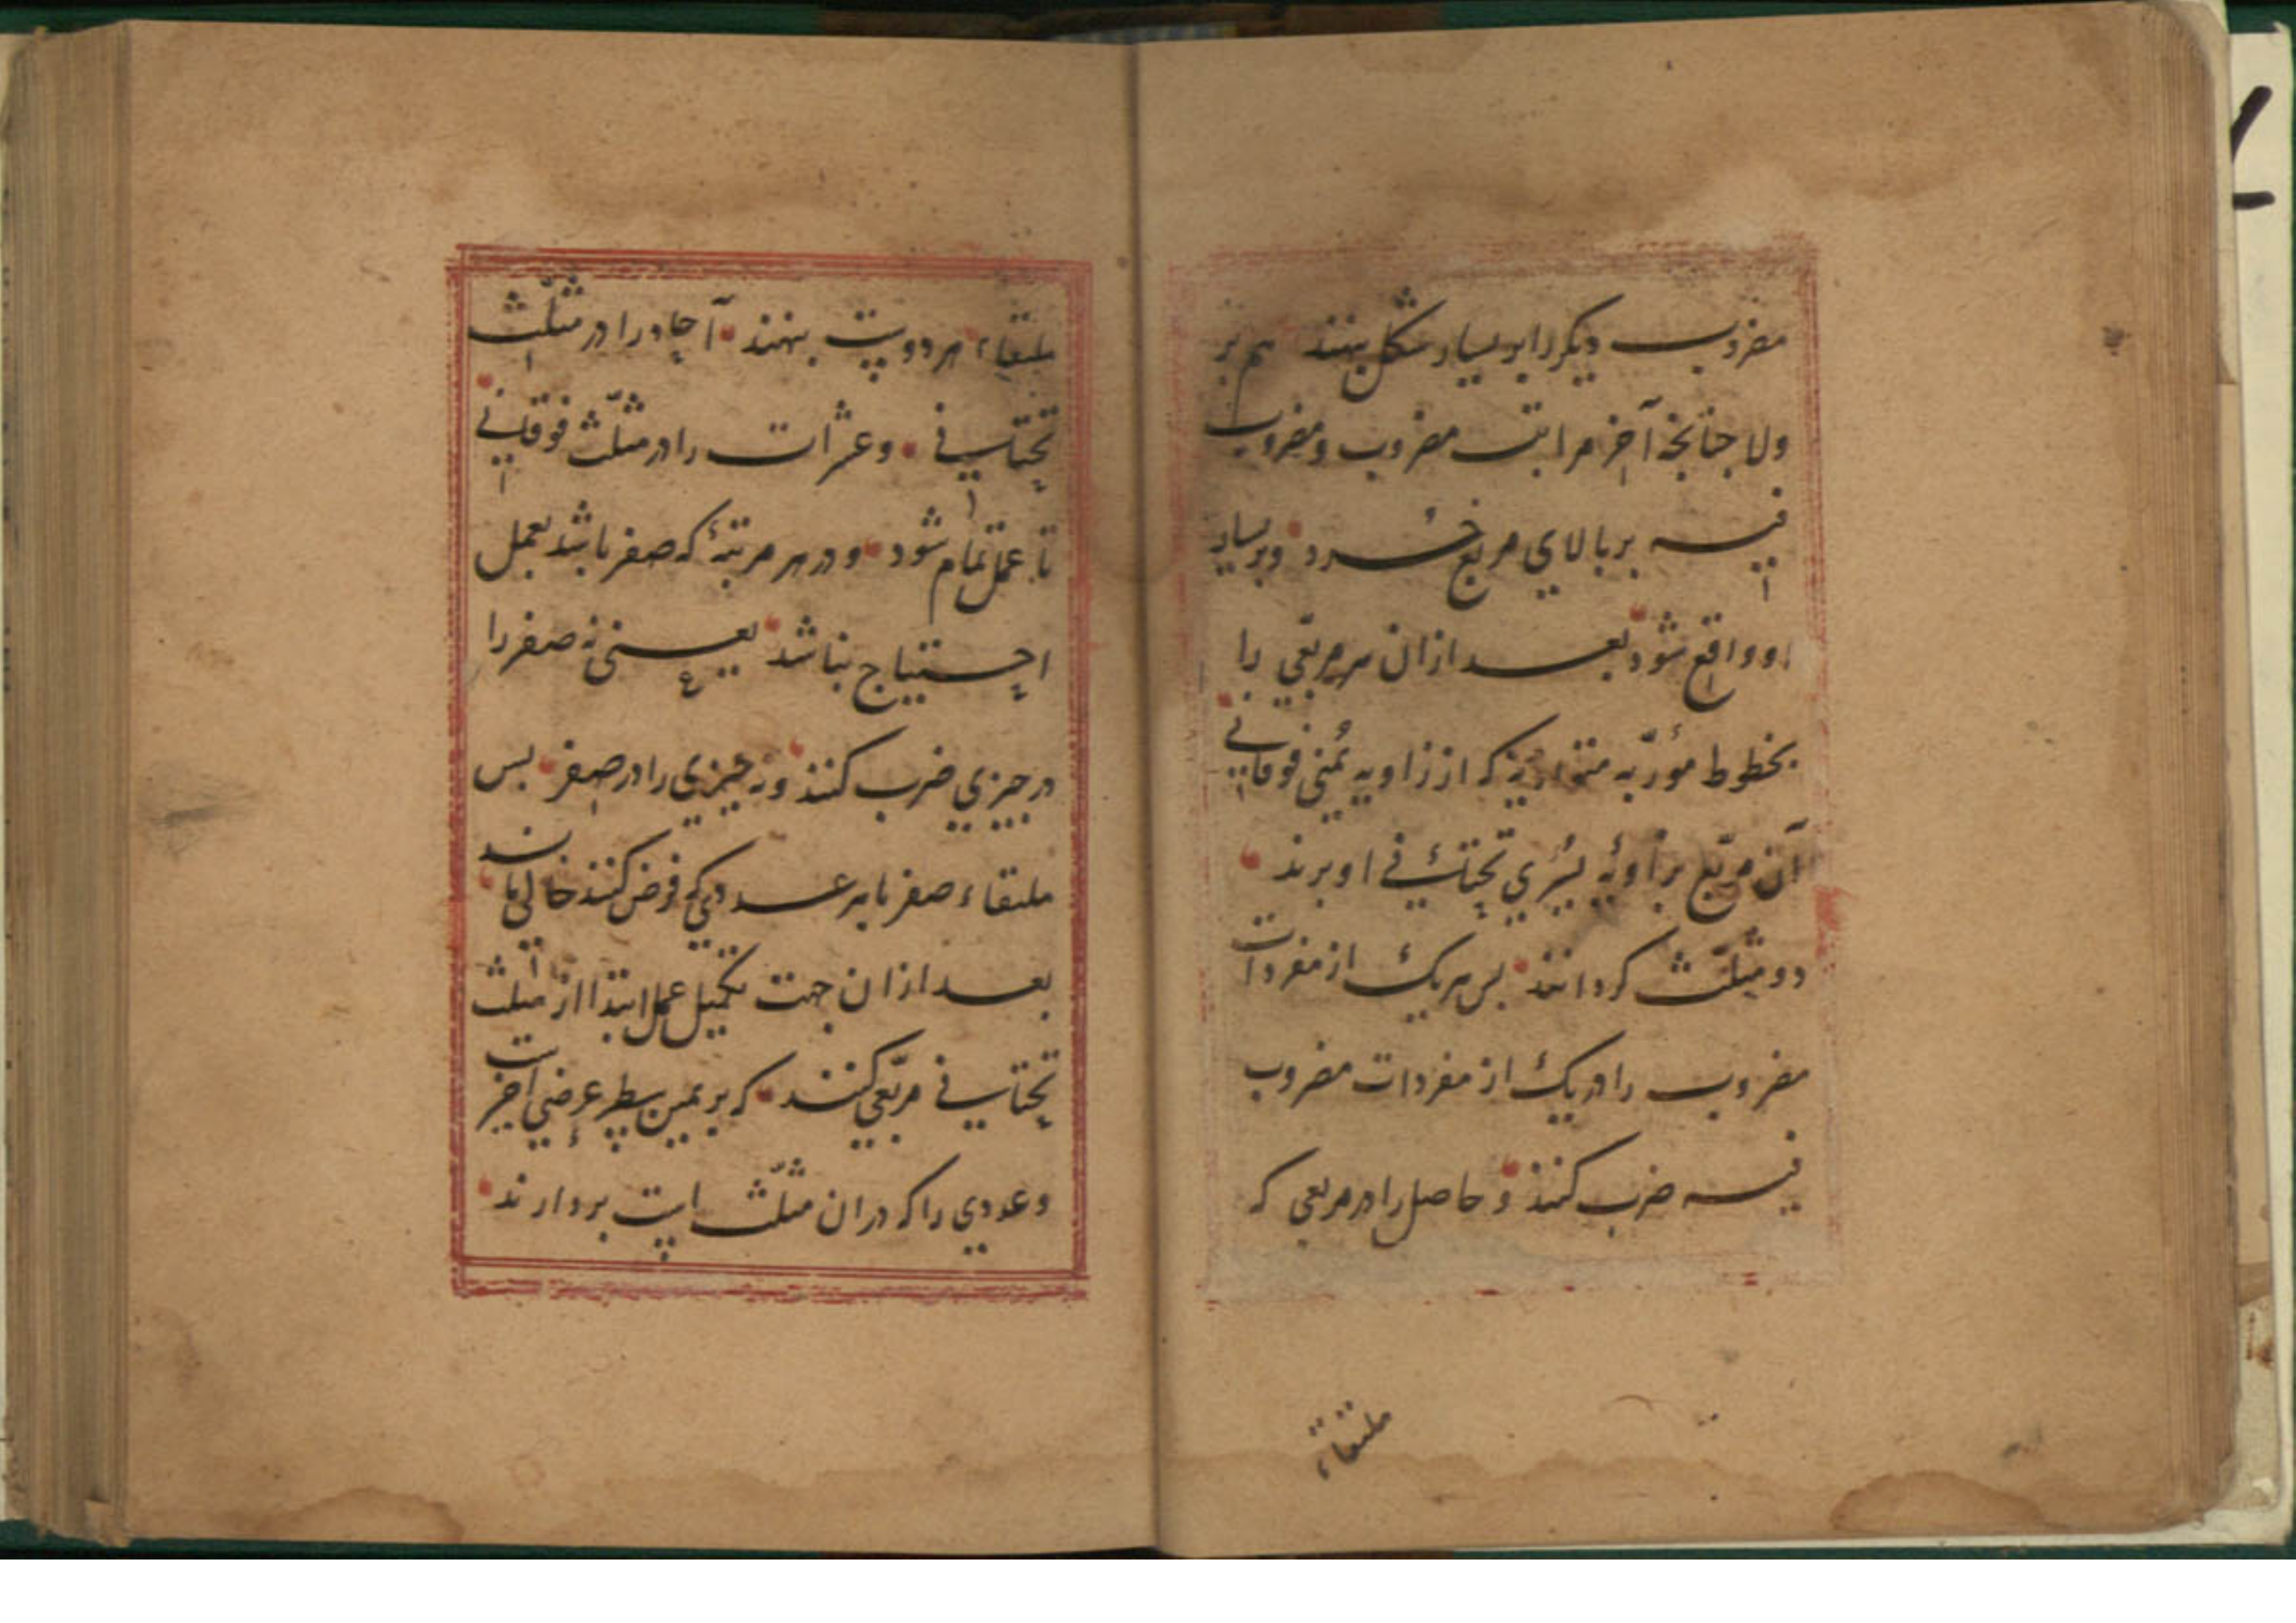 مضروب دیکر را بر یسار شکل نهند هم بر
ولا جنانجه آخر مراتب مضروب ومضروب
فیه بر بالای مربع خرد وبر یسار
او واقع شود بعد ازان هر مربعی را
بخطوط مؤربه متوازیه که از زاویه یمنی فوقانی
آن مربع بزاویه یسری تحتانی او برند
دو مثلث کردانند بس هر یک از مفردات
مضروب را در یک از مفردات مضروب
فیه ضرب کنند وحاصل را در مربعی که
ملتقاء
ملتقاء هر دو پست بنهند آحاد را در مثلث
تحتانی وعشرات را در مثلث فوقانی
تا عمل تمام شود ودر هر مرتبهٔ که صفر باشد بعمل
احتیاج نباشد یعنی نه صفر را
در چیزی ضرب کنند ونه چیزی را در صفر بس
ملتقاء صفر با هر عددی که فرض کنند خالی باشد
بعد ازان جهت تکمیل عمل ابتدا از مثلث
تحتانی مربعی کنند که بر یمین سطر عرضی اخیر است
وعددی را که دران مثلث است بردارند